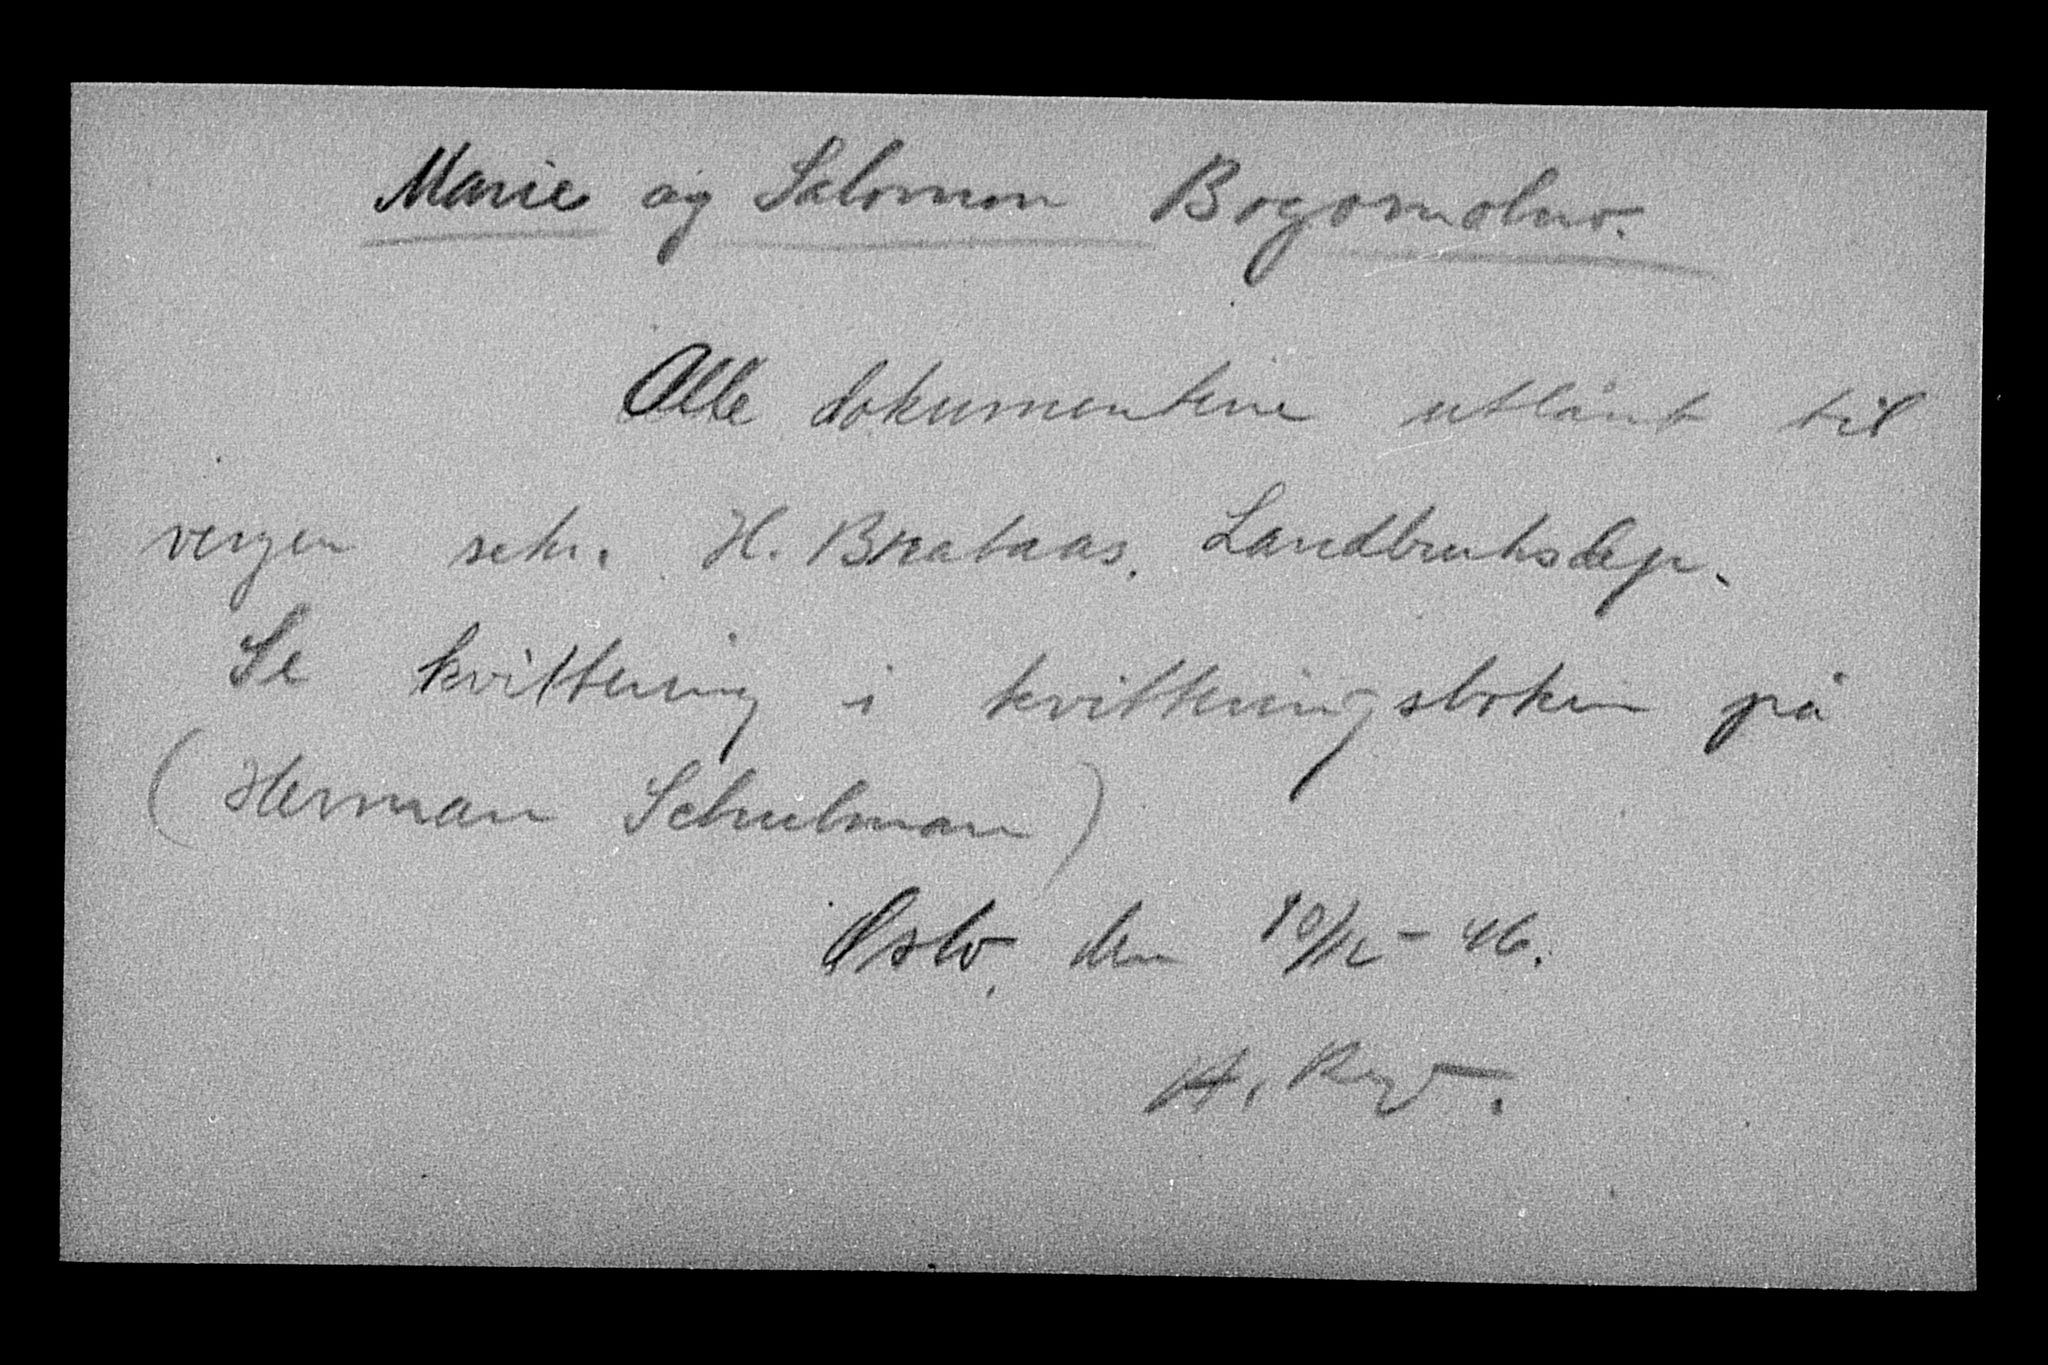 Marie og Salomon Bogomolno.
Alle dokumentene utlånt til
vergen sekr. H. Brataas. Landbruksdep.
Se kvittering i kvitteringsboken på
(Herman Schulman)
Oslo, den 10/12 - 46.
H.